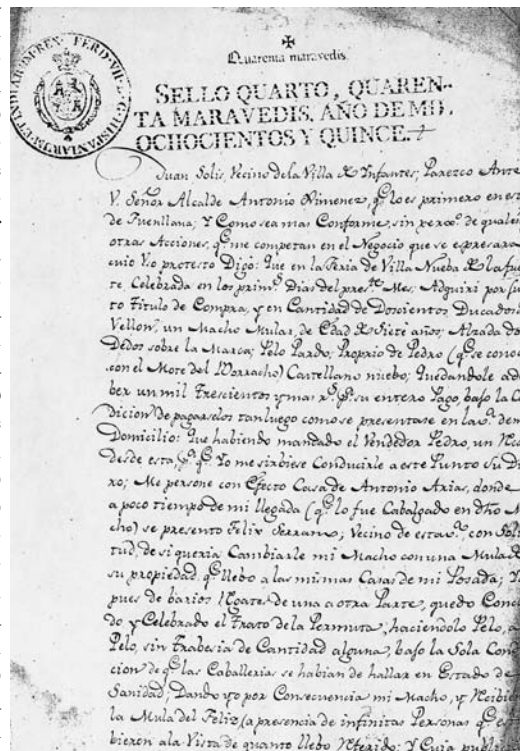 FERD. VII. D. G. HISPANIAR. ET INDIAR. REX
Quarenta maravedis.
SELLO QUARTO, QUAREN-
TA MARAVEDIS, AÑO DE MIL
OCHOCIENTOS Y QUINCE.
Juan Solis, Vecino de la Villa de Ynfantes; Parezco Ante
V. Señor Alcalde Antonio Ximenez, q.e lo es primero en es
de Fuenllana; Y Como sea mas Conforme, sin perxo.o de quales
otras Acciones, q.e me competan en el Negocio que se espresara
cuio Yo protesto Digo: Que en la Feria de Villa Nueba de la fue
te, Celebrada en los prim.s Dias del pres.te Mes, Adquiri por Ju
to Titulo de Compra, y en Cantidad de Doscientos Ducados
Vellon, un Macho Mular, de Edad de Siete años; Alzada do
Dedos sobre la Marca; Pelo Pardo; Proprio de Pedro (q.e se conoc
con el Mote del Worracho) Castellano nuebo; Quedandole a de
ber un mil Trescientos y mas r.s p.a su entero Pago, bajo la Co
dicion de pagarselos tan luego como se presentase en la de m
Domicilio: Que habiendo mandado el Vendedor Pedro, un Reca
desde esta p.a q.e Yo me sirbiese Conducirle a este Punto su Di
ro; Me persone con Efecto Casa de Antonio Arias, donde
a poco tiempo de mi llegada (q.e lo fue Cabalgado en dho M
cho) se presento Felix Serrano; Vecino de esta v.a, con Soli
tud, de si queria Cambiarle mi Macho con una Mula d
su propiedad q.e llebo a las mismas Casas de mi Posada; Y
pues de barios de una a otra Parte, quedo Conclu
do y Celebrado el Trato de la Permuta, haciendolo Pelo, a
Pelo, sin Trabesia de Cantidad alguna, bajo la Sola Con
cion de q.e las Caballerias se habian de hallar en Estado de
Sanidad; Dando yo por Consecuencia mi Macho, y Recibi
la Mula del Feliz (a presencia de infinitas Personas q.e es
bieron a la Vista de quanto llebo Referido. Y Cuia